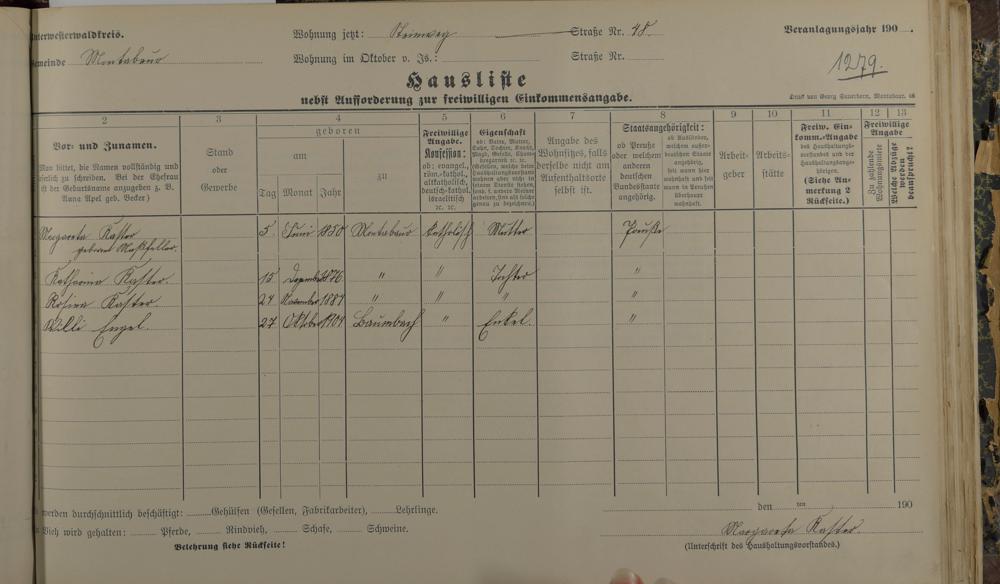 Unterwesterwaldkreis.
Wohnung jetzt: Steinweg Straße Nr. 48.
Veranlagungsjahr 190 .
Gemeinde Montabaur
Wohnung im Oktober v. Js.: Straße Nr.
1279.
Hausliste
nebst Aufforderung zur freiwilligen Einkommensangabe.
Druck von Georg Sauerborn, Montabaur.
2 3 4 5 6 7 8 9 10 11 12 13
Vor- und Zunamen.
Man bittet, die Namen vollständig und
deutlich zu schreiben. Bei der Ehefrau
ist der Geburtsname anzugeben z. B.
Anna Apel geb. Becker)
Stand
oder
Gewerbe
geboren
am
zu
Tag Monat Jahr
Freiwillige
Angabe.
Konfession:
ob: evangel.,
röm.-kathol.,
altkatholisch,
deutsch-kathol.
israelitisch
ꝛc. ꝛc.
Eigenschaft
ob: Vater, Mutter,
Sohn, Tochter, Knecht,
Magd, Geselle,
Angabe des
Wohnsitzes, falls
derselbe nicht am
Aufenthaltsorte
selbst ist.
Staatsangehörigkeit:
ob Preuße
oder welchem
anderen
deutschen
Bundesstaate
angehörig.
ob Ausländer,
welchem außer-
deutschen Staate
angehörig,
seit wann hier
wohnhaft und seit
wann in Preußen
überhaupt
wohnhaft.
Arbeit-
geber
Arbeits-
stätte
Freiw. Ein-
komm.-Angabe
des Haushaltungs-
vorstandes und der
Haushaltungsange-
hörigen.
(Siehe An-
merkung 2
Rückseite.)
Freiwillige
Angabe
Zu zahlende
Wohnungsmiete
Welche Abzüge
werden
beansprucht?
Margareta Kaster 5. Juni 1850 Montabaur Katholisch Mutter Preuße
geborene
Katharina Kaster. 15 Dezember 1876 " " Tochter "
Rosina Kaster. 24 November 1887 " " " "
Willi Engel. 27 Oktober 1901 Baumbach " Enkel. "
Es werden durchschnittlich beschäftigt: Gehülfen (Gesellen, Fabrikarbeiter), Lehrlinge.
An Vieh wird gehalten: Pferde, Rindvieh, Schafe, Schweine.
Belehrung siehe Rückseite!
den ten 190
Margareta Kaster.
(Unterschrift des Haushaltungsvorstandes.)